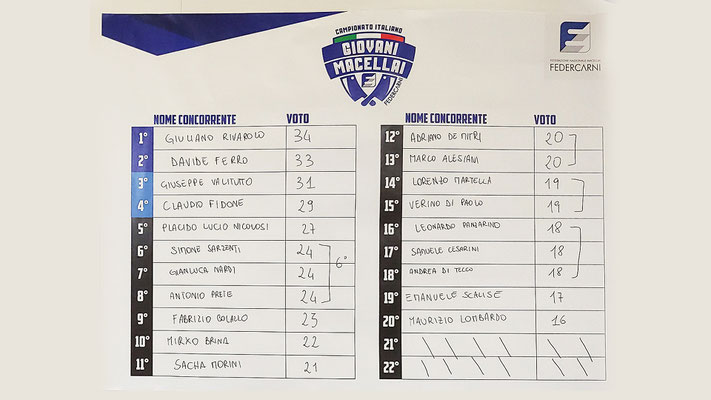 CAMPIONATO ITALIANO
GIOVANI
MACELLAI
FEDERCARNI
FEDERCARNI
NOME CONCORRENTE VOTO
1° GIULIANO RIVAROLO 34
2° DAVIDE FERRO 33
3° GIUSEPPE VALITUTO 31
4° CLAUDIO FIDONE 29
5° PLACIDO LUCIO NICOLOSI 27
6° SIMONE SARZENTI 24
7° GIANLUCA NARDI 24 6°
8° ANTONIO PRETE 24
9° FABRIZIO COLALLO 23
10° MIRKO BRINA 22
11° SACHA MORINI 21
NOME CONCORRENTE VOTO
12° ADRIANO DE MITRI 20
13° MARCO ALESIANI 20
14° LORENZO MARTELLA 19
15° VERINO DI PAOLO 19
16° LEONARDO PANTARINO 18
17° SAMUELE CESARINI 18
18° ANDREA DI TECCO 18
19° EMANUELE SCALISE 17
20° MAURIZIO LOMBARDO 16
21°
22°